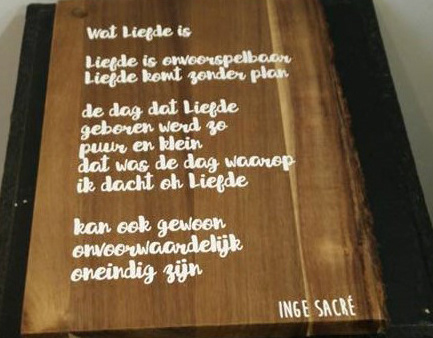 Wat Liefde is
Liefde is onvoorspelbaar
Liefde komt zonder plan
de dag dat Liefde
geboren werd zo
puur en klein
dat was de dag waarop
ik dacht oh Liefde
kan ook gewoon
onvoorwaardelijk
oneindig zijn
INGE SACRÉ